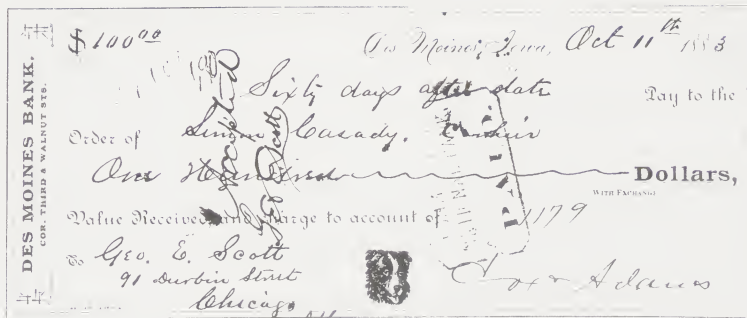 DES MOINES BANK.
COR. THIRD & WALNUT STS.
$100.00 Des Moines, Iowa, Oct 11th 1883
Sixty days after date Pay to the
Order of Simon Casady, Cashier
One Hundred Dollars,
WITH EXCHANGE
Value Received and charge to account of 1179
To Geo. E. Scott
91 Durbin Street
Chicago
Cox & Adams
Accepted
Geo Scott
PAID